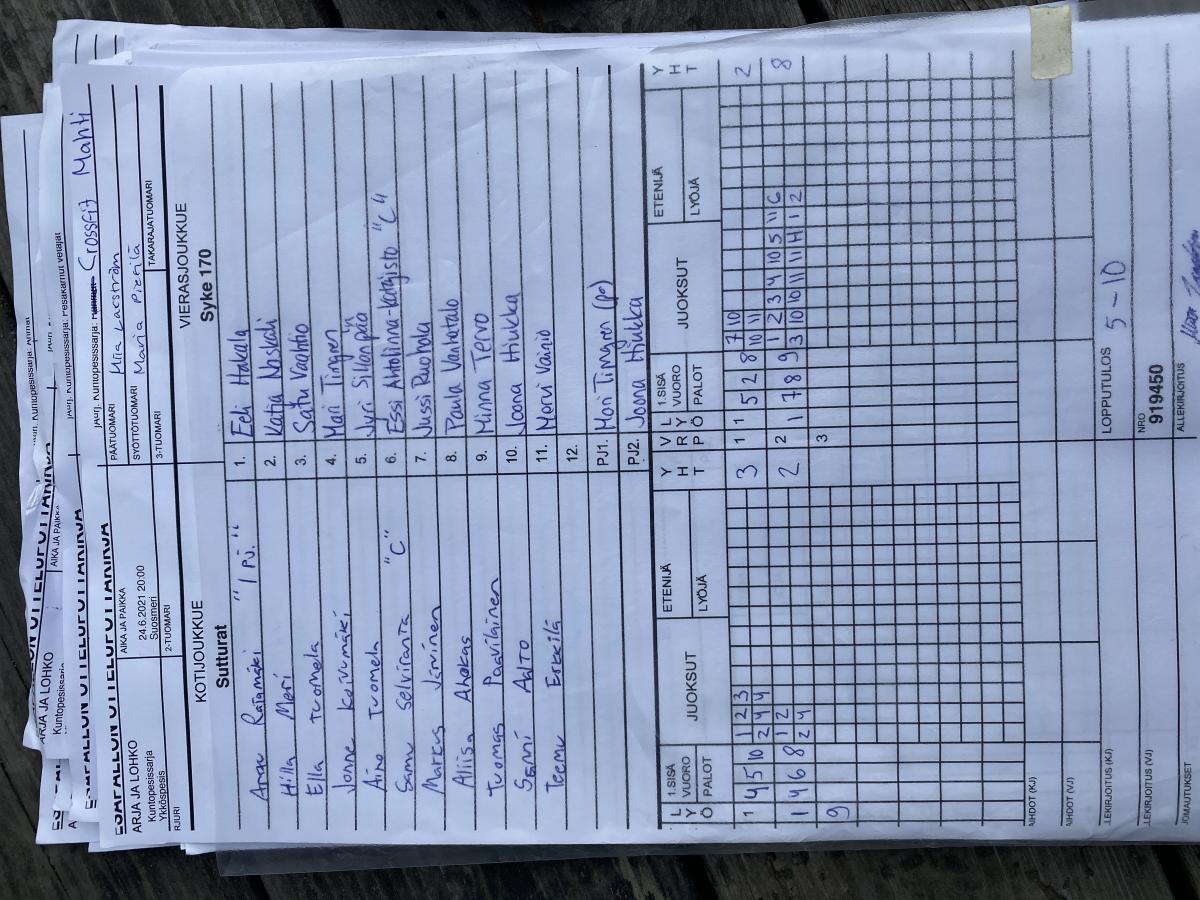 ESAPALLON OTTELUPÖYTÄKIRJA
Crossfit Mahti
ARJA JA LOHKO
Kuntopesissarja
Ykköspesis
AIKA JA PAIKKA
24.6.2021 20:00
Suosmeri
PÄÄTUOMARI
SYÖTTÖTUOMARI Maria Pietilä
RJURI
2-TUOMARI
3-TUOMARI
TAKARAJATUOMARI
KOTIJOUKKUE
Sutturat
VIERASJOUKKUE
Syke 170
Ratamäki "1 PJ." 1. Eeli Hakala
Hilla Meri 2. Katja Koskali
Ella Tuomela 3. Satu Vanhtio
Jonne Koivumäki 4. Mari Timgren
Aino Tuomela 5. Jyri Sillanpää
Samu Selviranta "C" 6. Essi Anttolinna-Katajisto "C"
Markus Järvinen 7. Jussi Ruohola
Aliisa Ahokas 8. Paula Vanhatalo
Tuomas Paavilainen 9. Minna Tervo
Sanni Aalto 10. Joona Hiukka
Teemu Eskelä 11. Mervi Vainio
12.
PJ1. Mari Timgren (po)
PJ2. Joona Hiukka
LYÖ 1.SISÄ VUORO PALOT JUOKSUT ETENIJÄ LYÖJÄ YHT VRP LYÖ 1.SISÄ VUORO PALOT JUOKSUT ETENIJÄ LYÖJÄ YHT
1 4 5 10 1 2 3 3 1 1 5 2 8 7 10 2
2 4 4 10 11
1 4 6 8 1 2 2 2 1 7 8 9 1 2 3 4 10 5 11 6 8
2 4 3 10 10 11 11 H 1 2
9 3
AIHDOT (KJ)
AIHDOT (VJ)
LEKIRJOITUS (KJ) LOPPUTULOS 5 - 10
LEKIRJOITUS (VJ) NRO
919450
JOMAUTUKSET ALLEKIRJOITUS